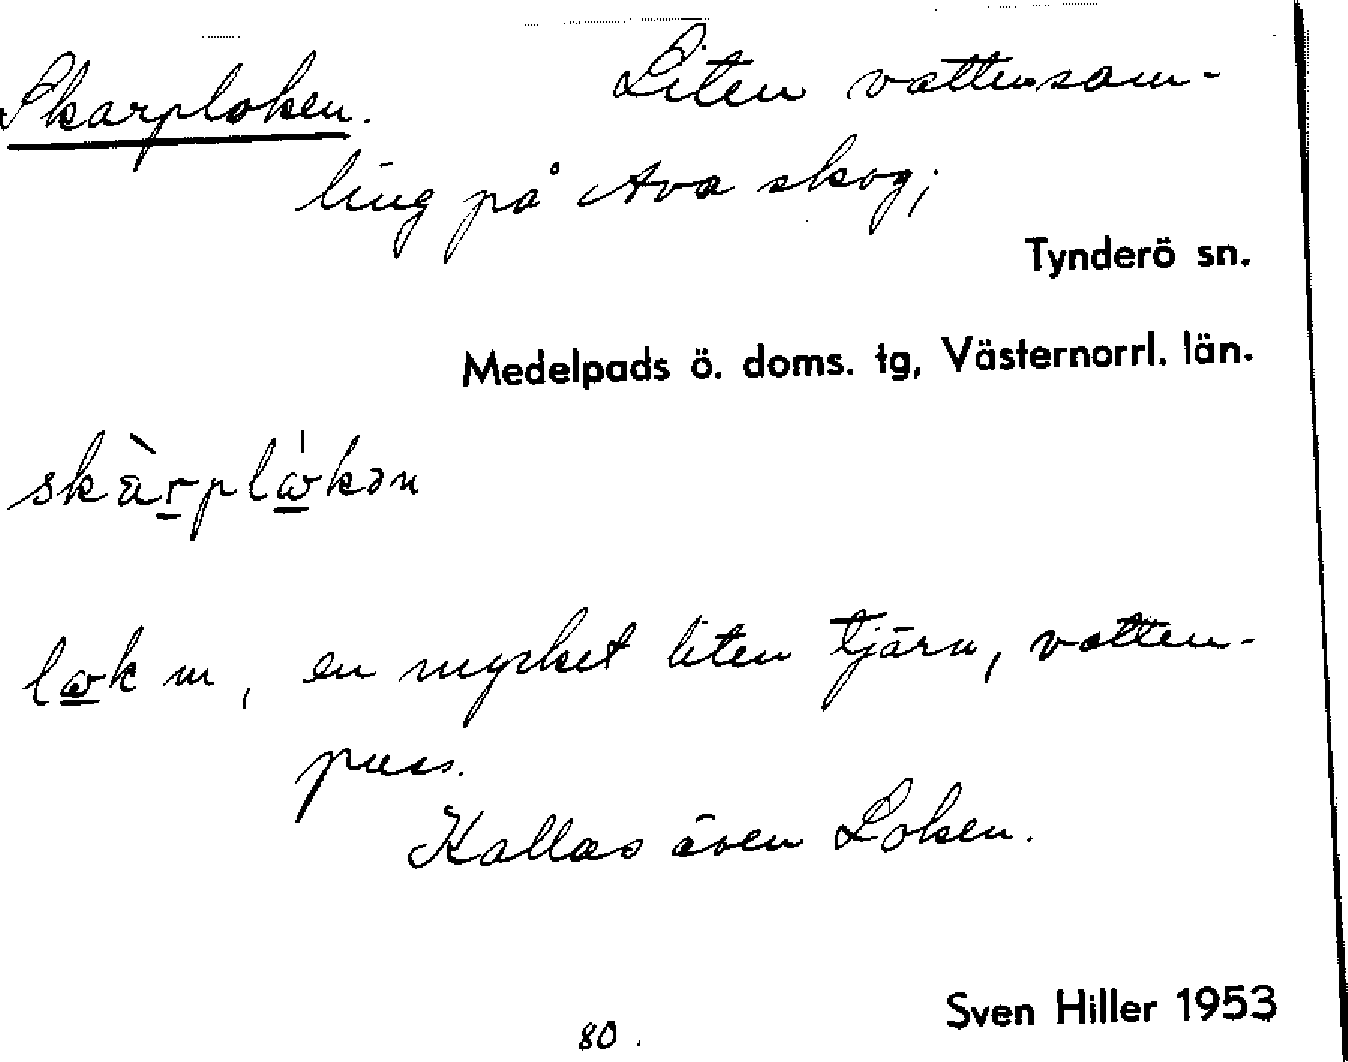 Skarploken. Liten vattensam-
ling på Ava skog;
Tynderö sn.
Medelpads ö. doms. tg, Västernorrl. län.
skàrplǻkən
lωk m, en mycket liten tjärn, vatten-
puss.
Kallas även Loken.
Sven Hiller 1953
80.